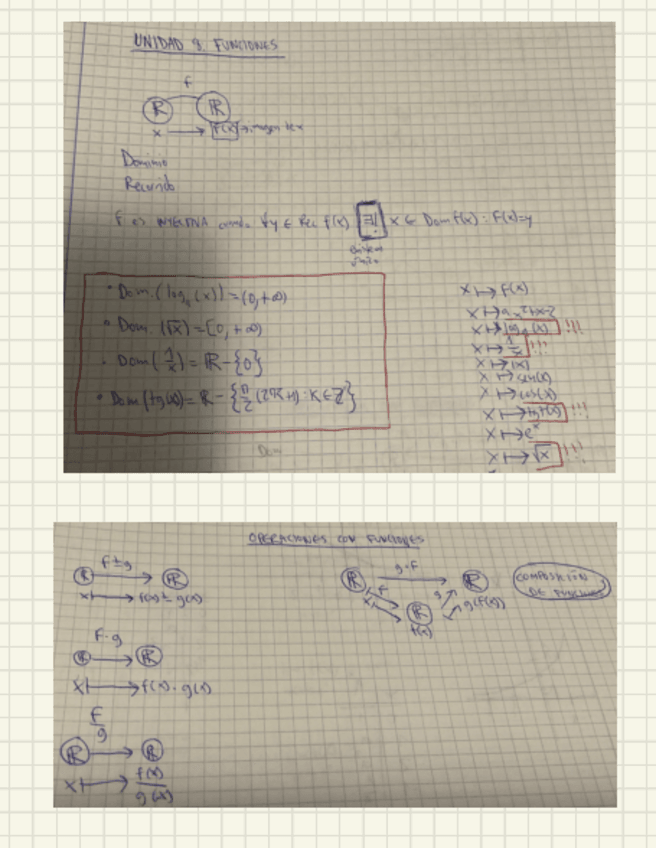 UNIDAD 9. FUNCIONES
f
ℝ ℝ
x → f(x) → imagen de x
Dominio
Recorrido
f es INYECTIVA cuando ∀y ∈ Rec f(x) ∃! x ∈ Dom f(x) : f(x)=y
• Dom (log_a(x)) = (0,+∞)
• Dom (√x) = [0,+∞)
• Dom (1/x) = ℝ - {0}
• Dom (tg(x)) = ℝ - {π/2 (2K+1) : K ∈ ℤ}
Dom
x ↦ f(x)
x ↦ log_a(x) !!!
x ↦ 1/x !!!
x ↦ |x|
x ↦ sen(x)
x ↦ cos(x)
x ↦ tg(x) !!!
x ↦ e^x
x ↦ √x !!!
OPERACIONES CON FUNCIONES
f±g
ℝ → ℝ
x ↦ f(x) ± g(x)
f·g
ℝ → ℝ
x ↦ f(x) · g(x)
f/g
ℝ → ℝ
x ↦ f(x)/g(x)
g∘f
ℝ → ℝ
x f ℝ g g(f(x))
f(x)
COMPOSICIÓN
DE FUNCIONES